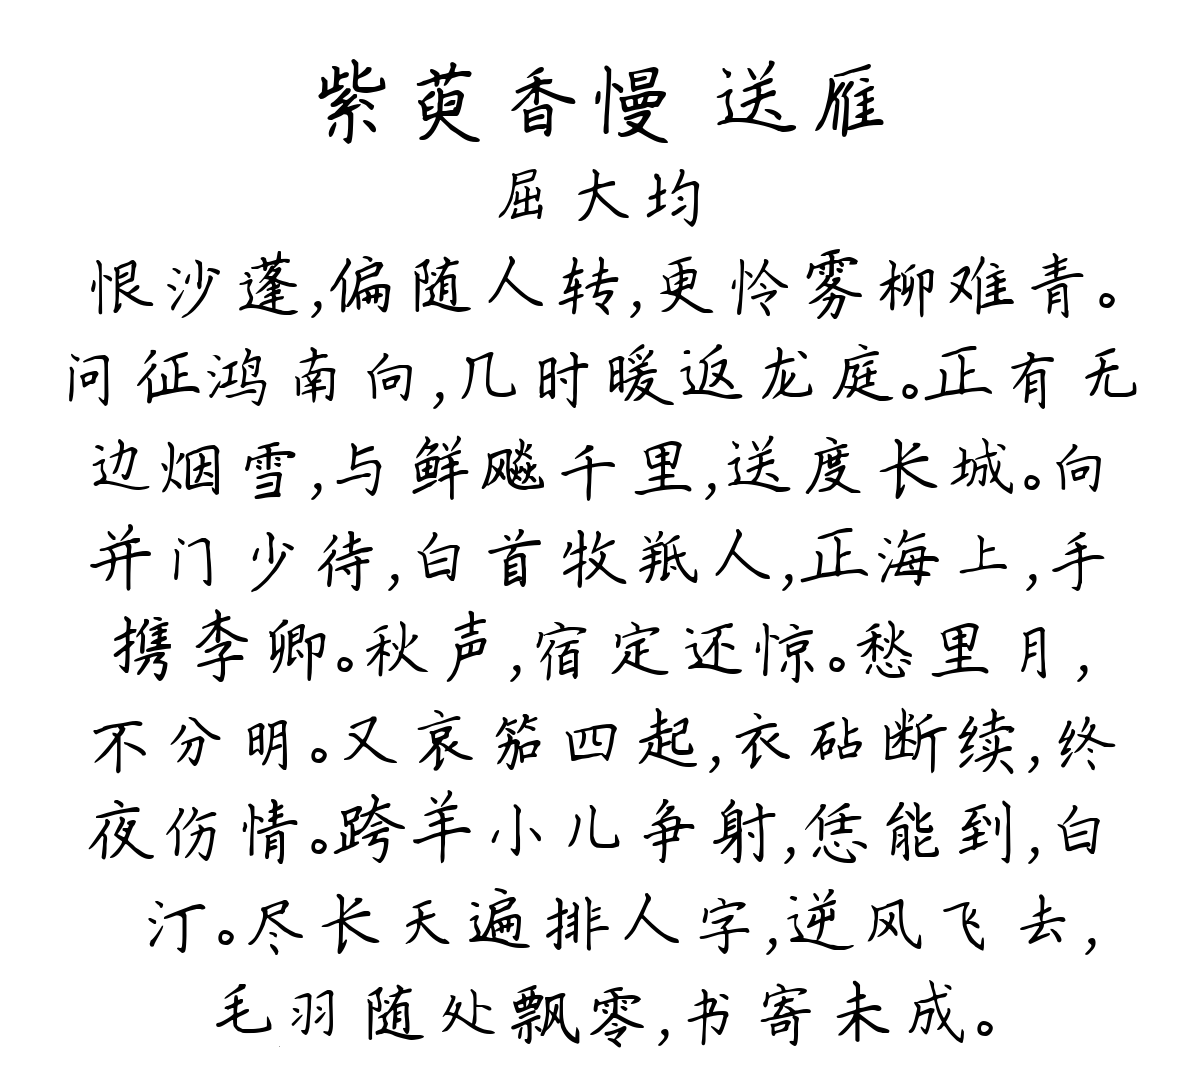 紫萸香慢 送雁
屈大均
恨沙蓬,偏随人转,更怜雾柳难青。
问征鸿南向,几时暖返龙庭。正有无
边烟雪,与鲜飚千里,送度长城。向
并门少待,白首牧羝人,正海上,手
携李卿。秋声,宿定还惊。愁里月,
不分明。又哀笳四起,衣砧断续,终
夜伤情。跨羊小儿争射,恁能到,白
汀。尽长天遍排人字,逆风飞去,
毛羽随处飘零,书寄未成。